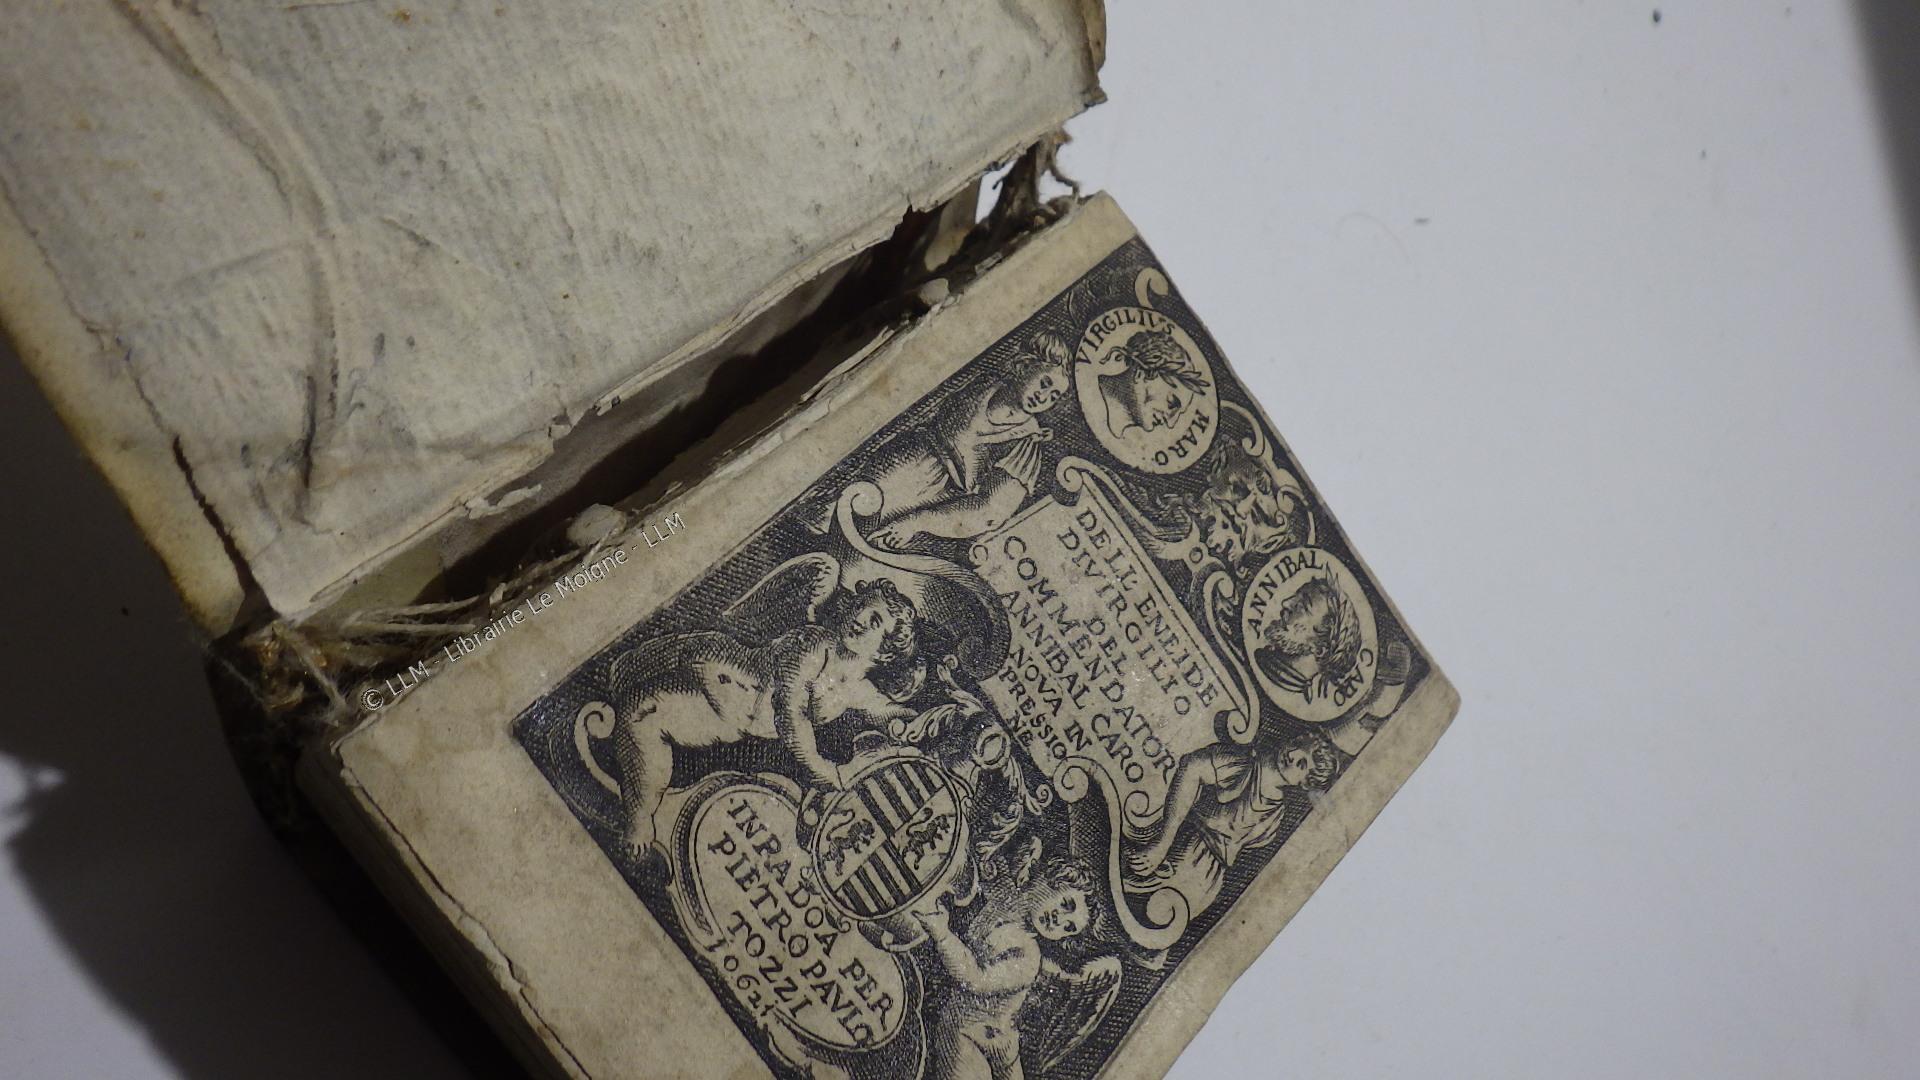 VIRGILIVS MARO.
ANNIBAL CARO
DELL ENEIDE
DI VIRGILIO
DEL
COMMENDATOR
ANNIBAL CARO
NOVA IN
PRESSIO
NE
IN PADOA PER
PIETRO PAVLO
TOZZI
© LLM - Librairie Le Moigne - LLM